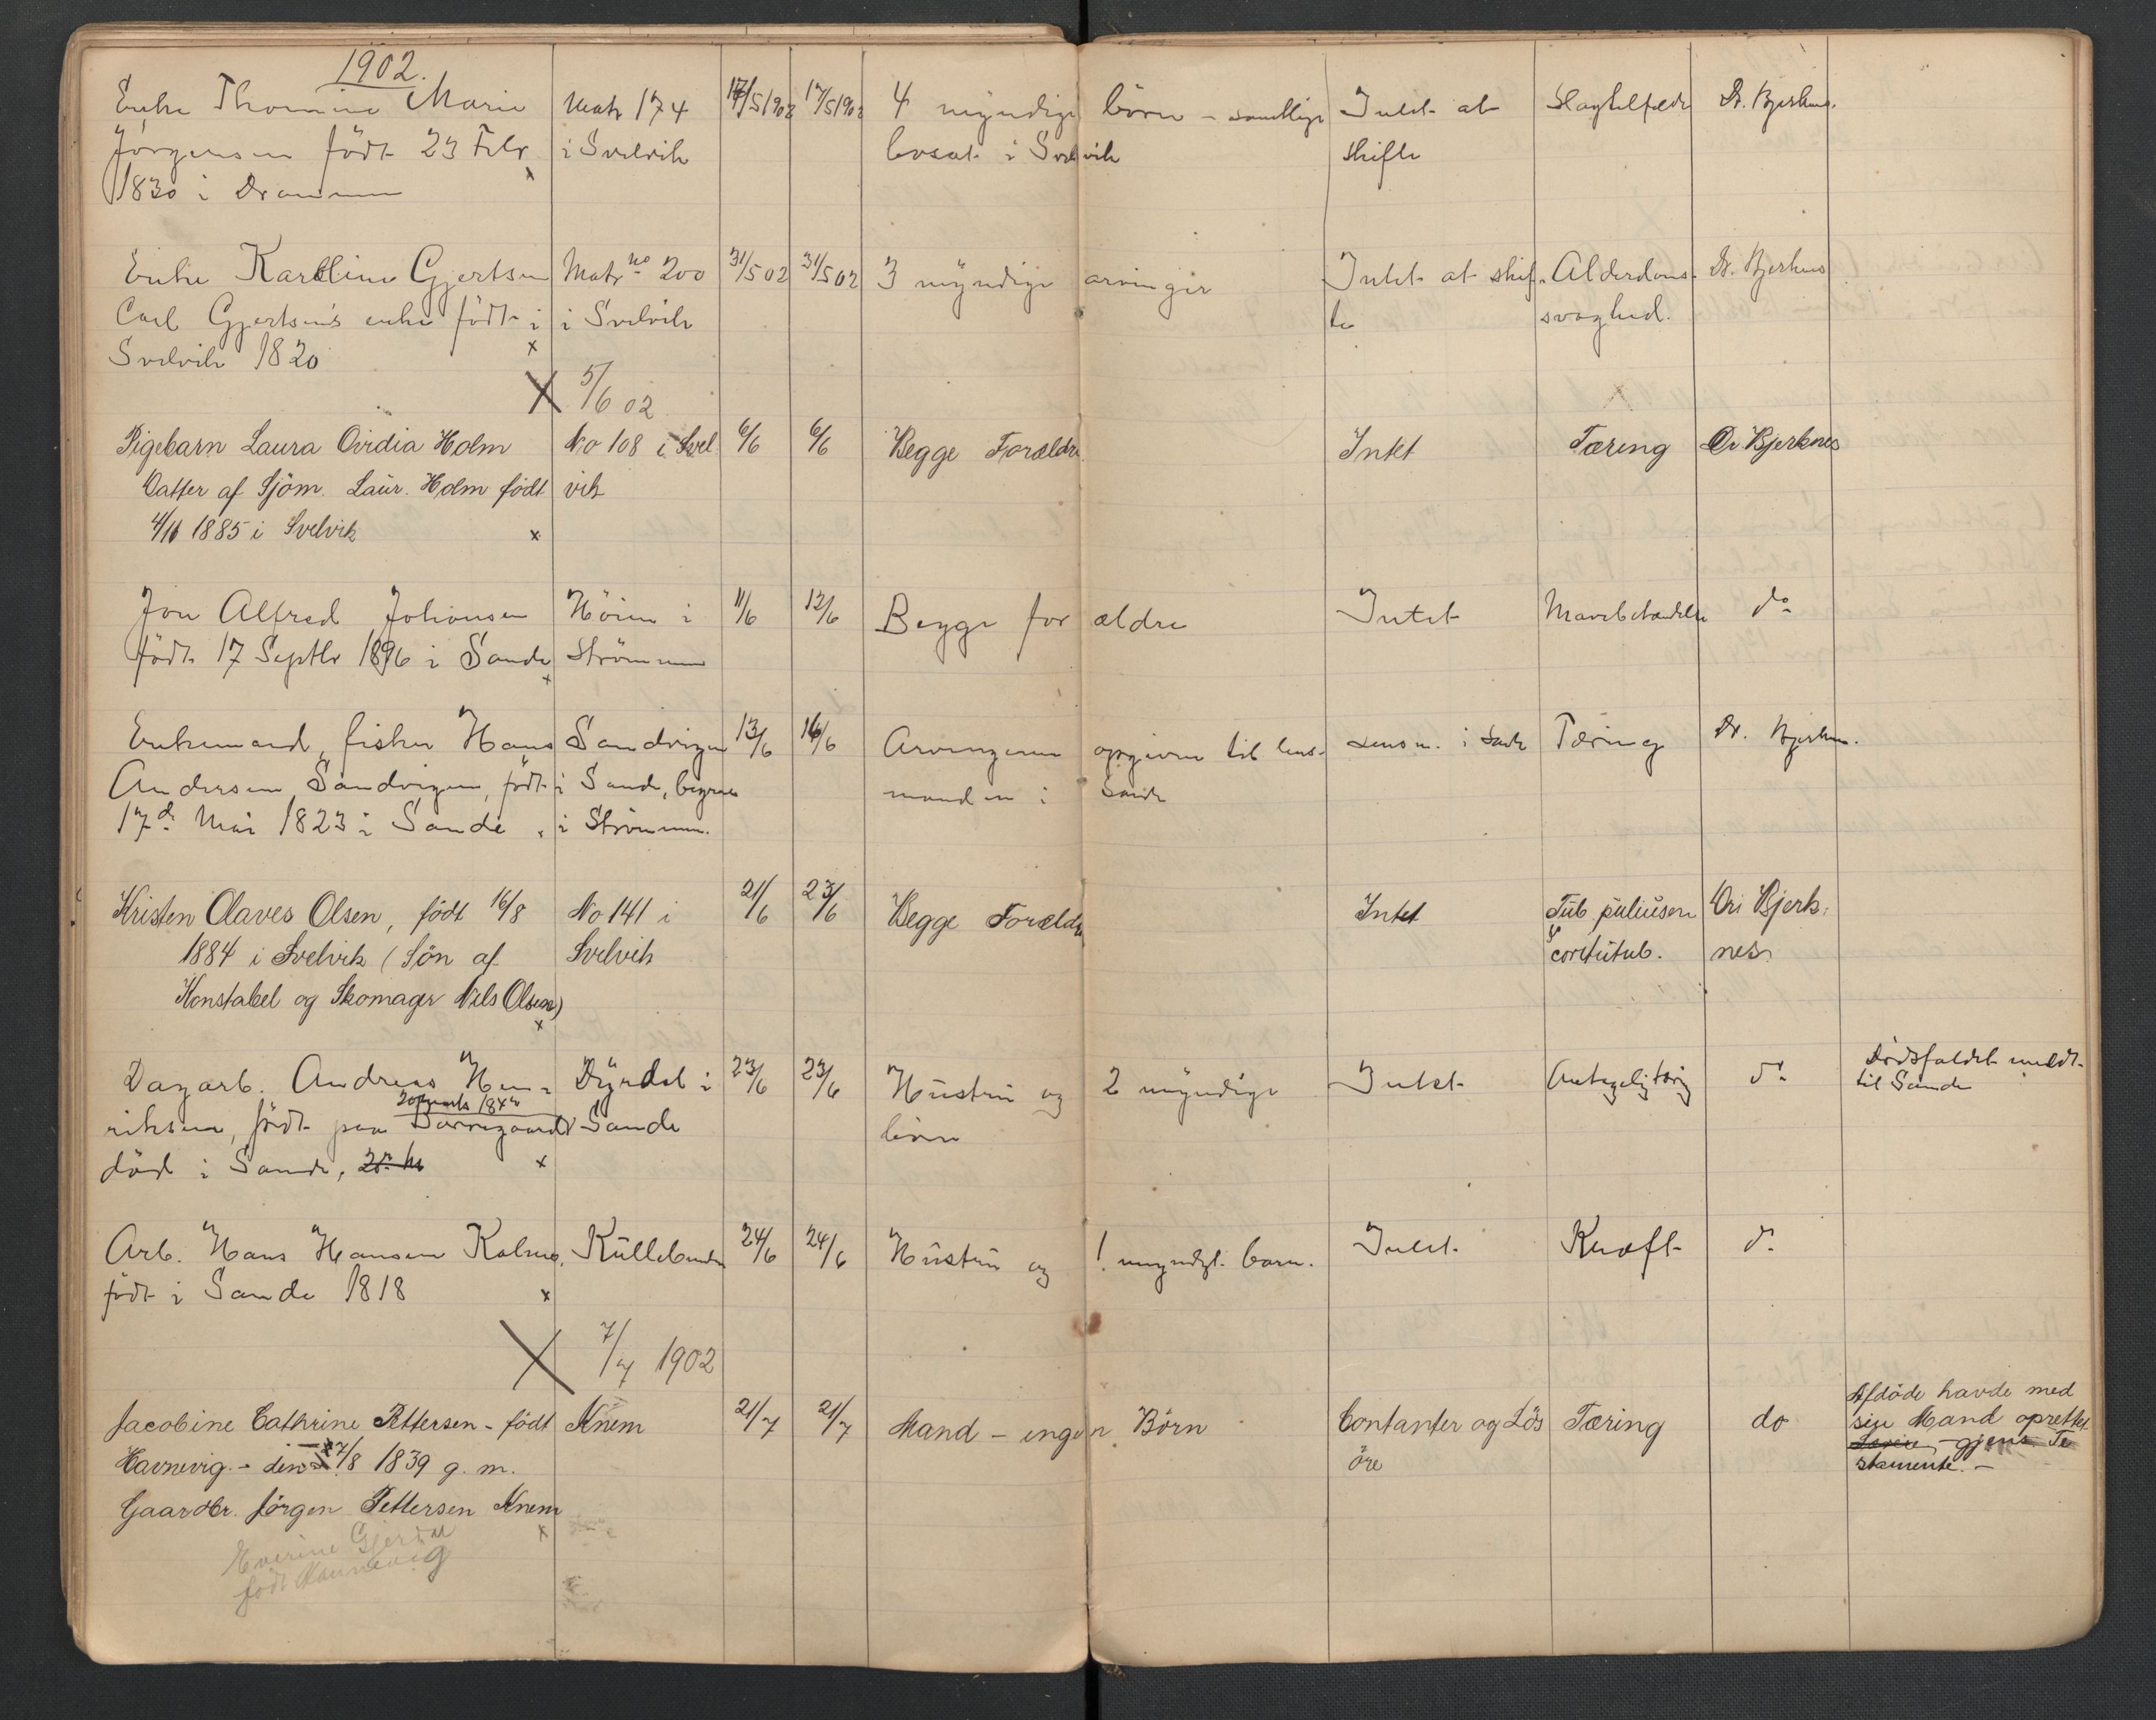 1902.
Enke Thomine Marie Matr 174 17/5 1902 17/5 1902 4 myndige börn - samtlige Intet at Slagtilfælde Dr. Bjerknes.
Jörgensen födt 23 Febr i Svelvik bosat i Svelvik skifte
1830 i Drammen x
Enke Karoline Gjertsen Matr no 200 31/5 02 31/5 02 3 myndige arvinger Intet at skif- Alderdoms- Dr. Bjerknes
Carl Gjertsen's enke födt i i Svelvik te svaghed.
Svelvik 1820 x
X 5/6 02
Pigebarn Laura Ovidia Holm No 108 i Svel 6/6 6/6 Begge Forældre. Intet Tæring Dr Bjerknes
Datter af Sjöm. Laur. Holm födt vik
4/11 1885 i Svelvik x
Jon Alfred Johansen Höien i 11/6 12/6 Begge forældre Intet Mavebetændelse do
födt 17 Septbr 1896 i Sande Strömmen
x
Enkemand, fisker Hans Sandvigen 13/6 16/6 Arvingerne opgives til lens- Lensm. i Sande Tæring Dr. Bjerknes.
Andersen Sandvigen, födt i Sande, begraves manden i Sande
17de Mai 1823 i Sande x i Strömmen.
Kristen Olaves Olsen, födt 16/8 No 141 i 21/6 23/6 Begge Forældre Intet Tub. Dr Bjerk-
1884 i Svelvik (Sön af Svelvik nes
Konstabel og Skomager Nils Olsen)
x
Dagarb. Andreas Hen- Dyrdal i 23/6 23/6 Hustru og 2 myndige Intet Antagelig tæring do Dödsfaldet meldt
20 marts 184 til Sande
riksen, födt paa Sande börn
död i Sande, x
Arb. Hans Hansen Kullebunden 24/6 24/6 Hustru og 1 myndigt barn. Intet Kræft do
födt i Sande 1818 x
X 7/7 1902
Jacobine Cathrine Pettersen - födt Knem 21/7 21/7 Mand - ingen Börn Contanter og Lös Tæring do Afdöde havde med
Havnevig - den 7/8 1839 g. m. öre sin Mand oprettet
gjens Te
Gaardbr. Jörgen Pettersen Knem stamente. -
x
Everine Gjertsen
født Havnevig